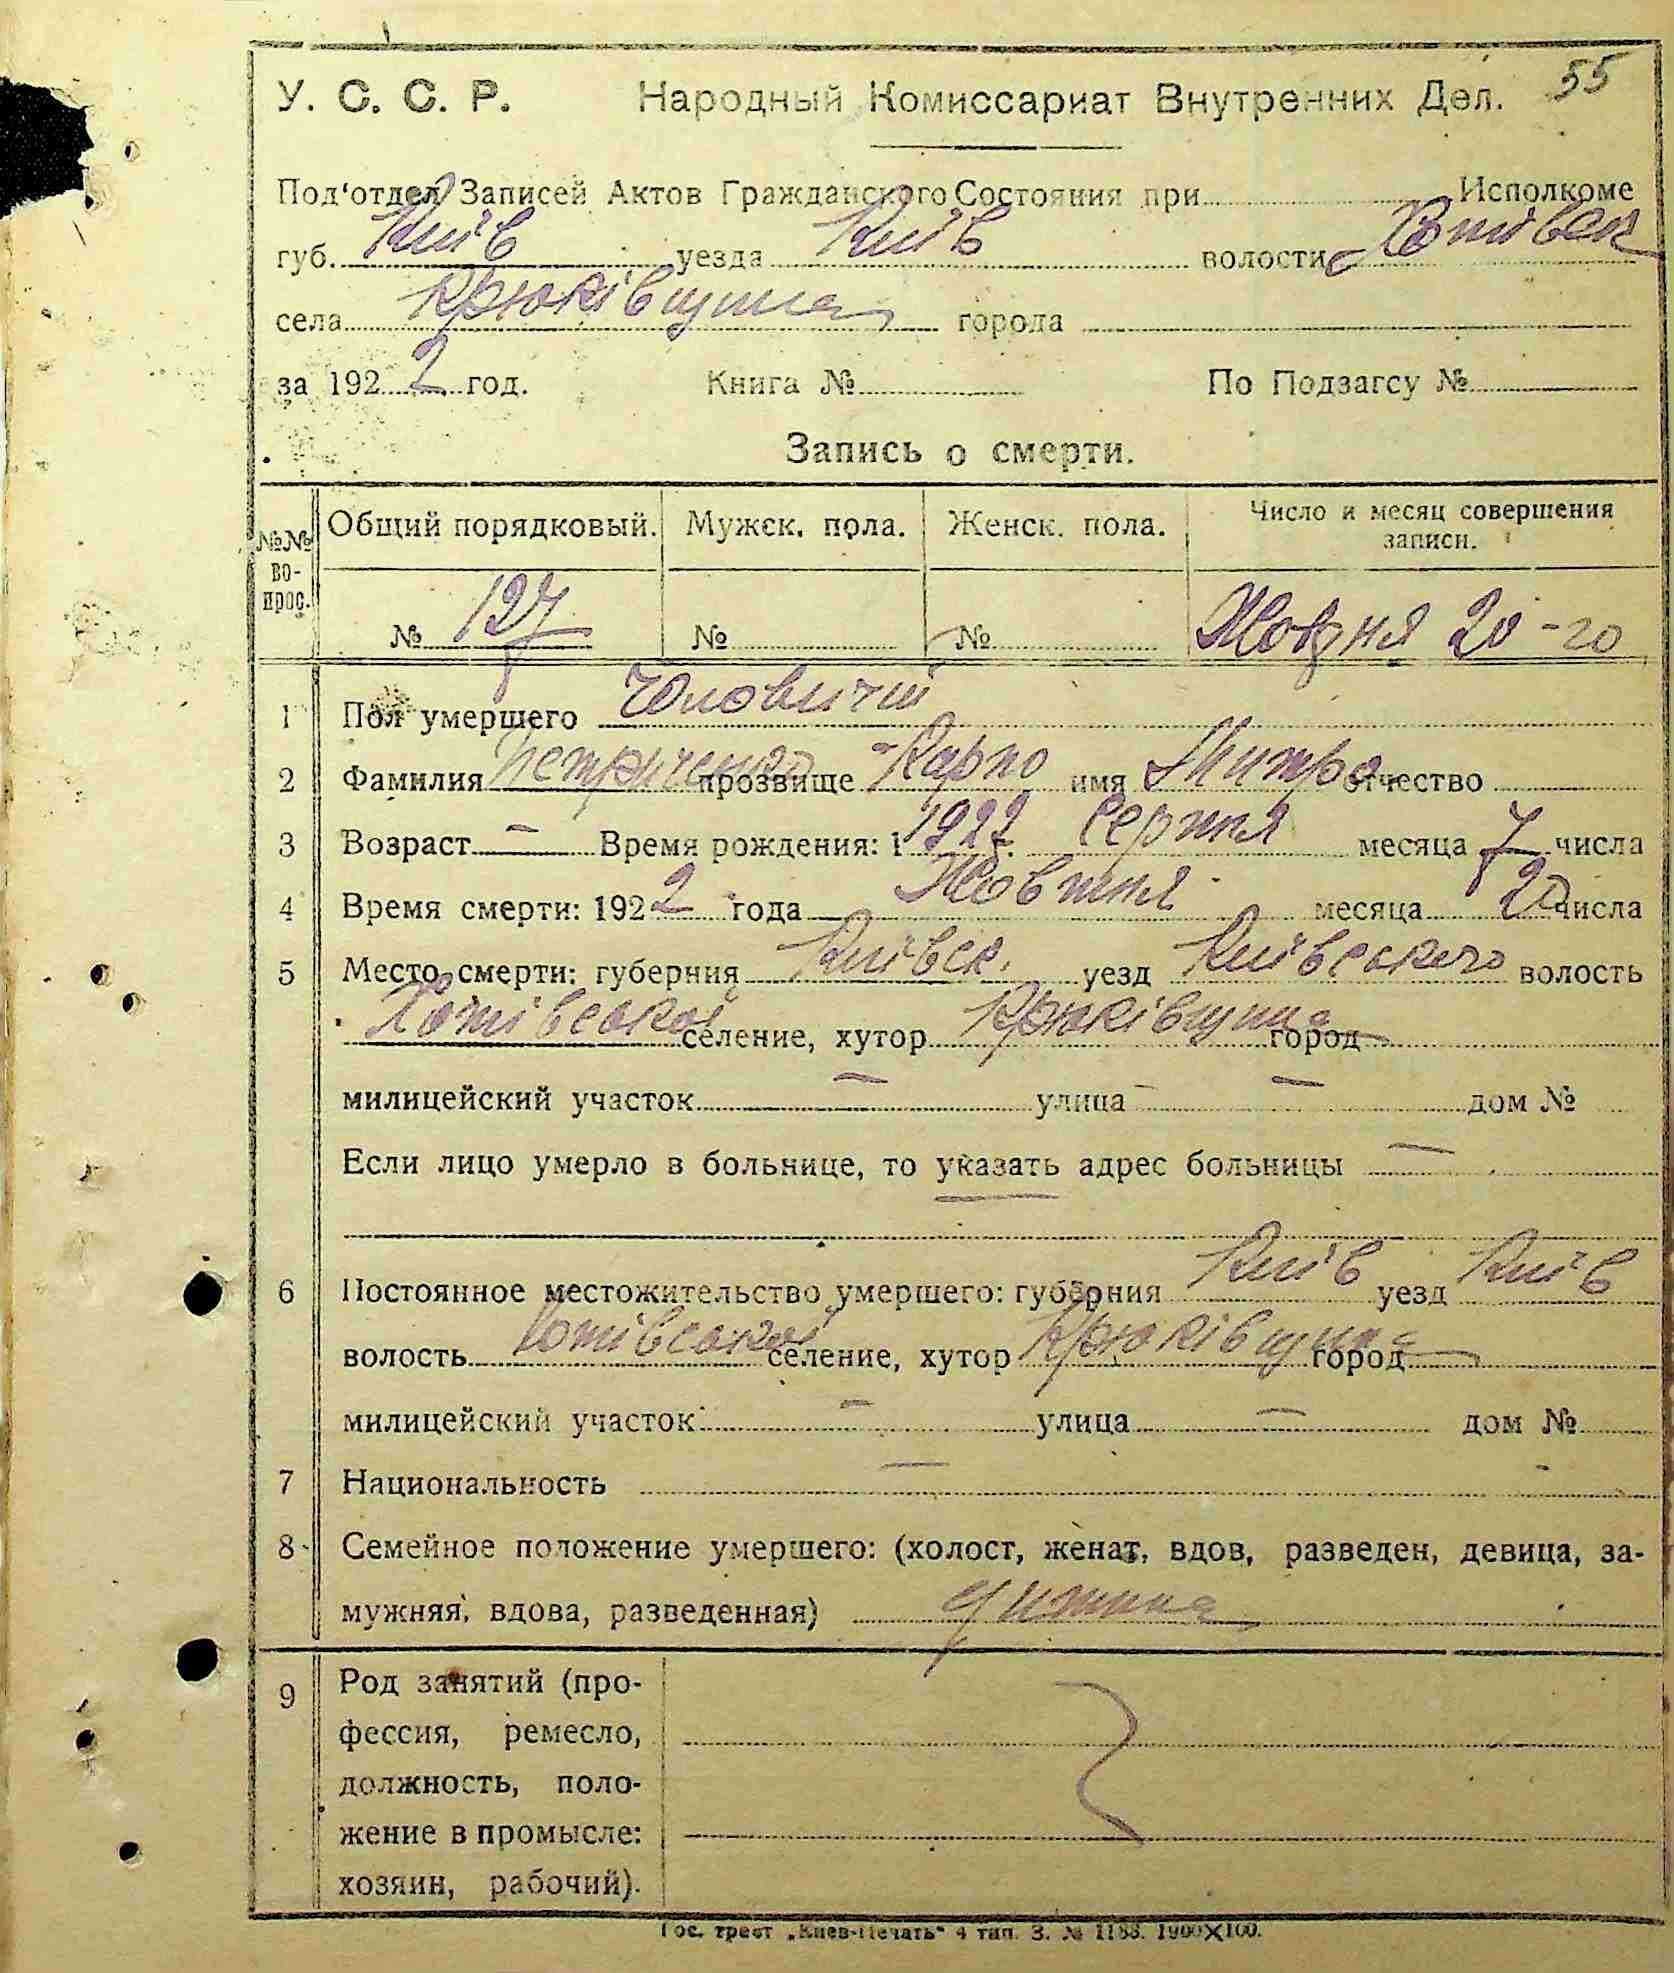 55
У. С. С. Р. Народный Комиссариат Внутренних Дел.
Под'отдел Записей Актов Гражданского Состояния при Исполкоме
губ. Київ уезда Київ волости Хотівск
села Крюківщина города
за 1922 год. Книга № По Подзагсу №
Запись о смерти.
№№ во-прос. Общий порядковый. Мужск. пола. Женск. пола. Число и месяц совершения записи.
№ 127 № № Жовдня 20-го
1 Пол умершего Чоловичій
2 Фамилия Петриченко прозвище Карпо имя Митро отчество
3 Возраст — Время рождения: 1 1922 г. Серпня месяца 7 числа
4 Время смерти: 1922 года Жовтня месяца 20 числа
5 Место смерти: губерния Київск. уезд Київського волость
Хотівської селение, хутор Крюківщина город
милицейский участок — улица — дом №
Если лицо умерло в больнице, то указать адрес больницы —
6 Постоянное местожительство умершего: губерния Київ уезд Київ
волость Хотівської селение, хутор Крюківщина город
милицейский участок — улица — дом №
7 Национальность —
8 Семейное положение умершего: (холост, женат, вдов, разведен, девица, за-
мужняя, вдова, разведенная) дитина
9 Род занятий (про-
фессия, ремесло,
должность, поло-
жение в промысле:
хозяин, рабочий).
Гос. трест „Киев-Печать" 4 тип. З. № 1188. 1900X100.